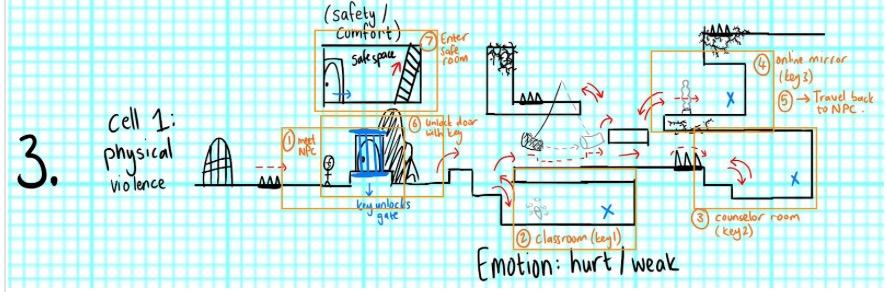 (safety/
comfort)
safe space
⑦ Enter
safe
room
3.
cell 1:
physical
violence
① meet
NPC
⑥ unlock door
with key
key unlocks
gate
② classroom (key1)
x
Emotion: hurt/weak
③ counselor room
(key2)
x
④ online mirror
(key3)
⑤ → Travel back
to NPC.
x